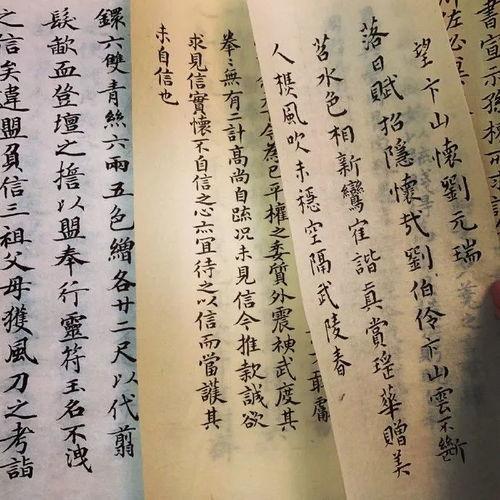 書宣示孫權
佐必
望卞山懷劉元瑞
落日賦招隱懷哉劉伯伶卞山雲不斷
苕水色相新鸞隺諧真賞瑤華贈美
人樵風吹未穩空隔武陵春
今為已平權之委質外震神武度其
拳〻無有二計高尚自疏况未見信今推款誠欲
求見信實懷不自信之心亦宜待之以信而當護其
未自信也
鐶六雙青絲六兩五色繒各廿二尺以代翦
髮歃血登壇之擔以盟奉行靈符玉名不洩
之信矣違盟負信三祖父母獲風刀之考詣